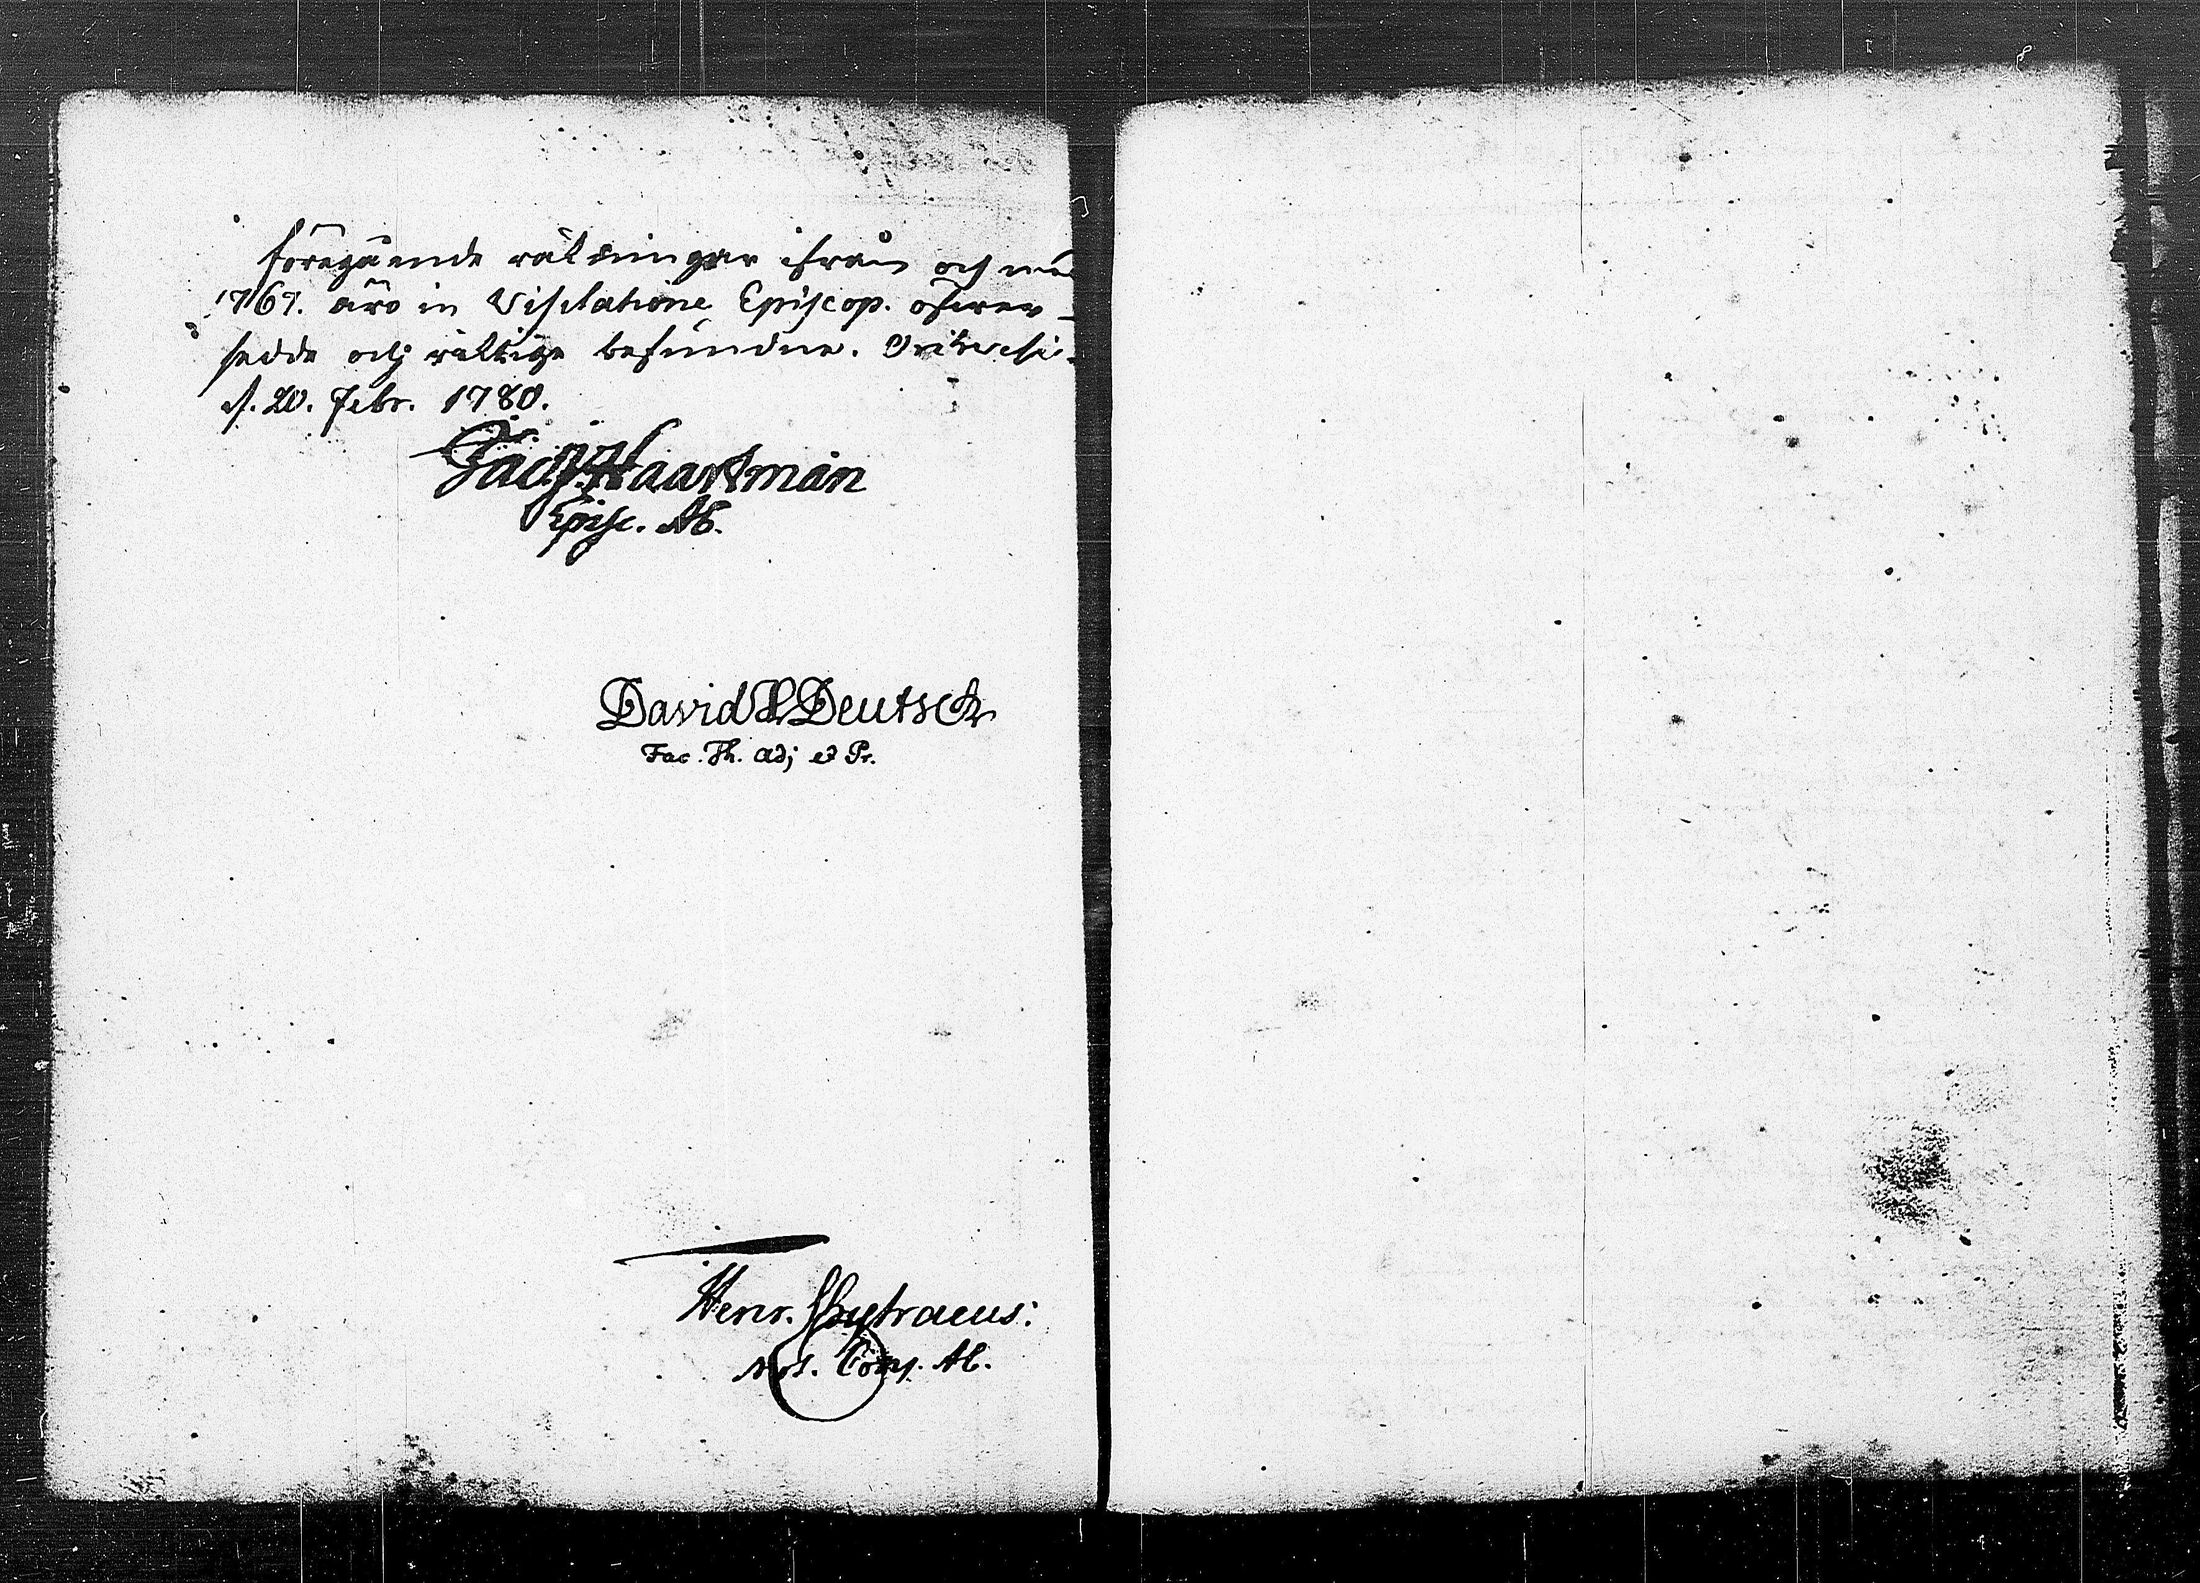 föregående räkningar ifrån och med
1767. äro in Visitatione Episcop. öfwer-
sedde och riktige befundne.
d. 20. Febr. 1780.
Jac. Haartman
Episc. Ab.
David Deutsch
Fac. Th. Adj et Pr.
Henr. Chytraeus:
Not. Cons. Ab.